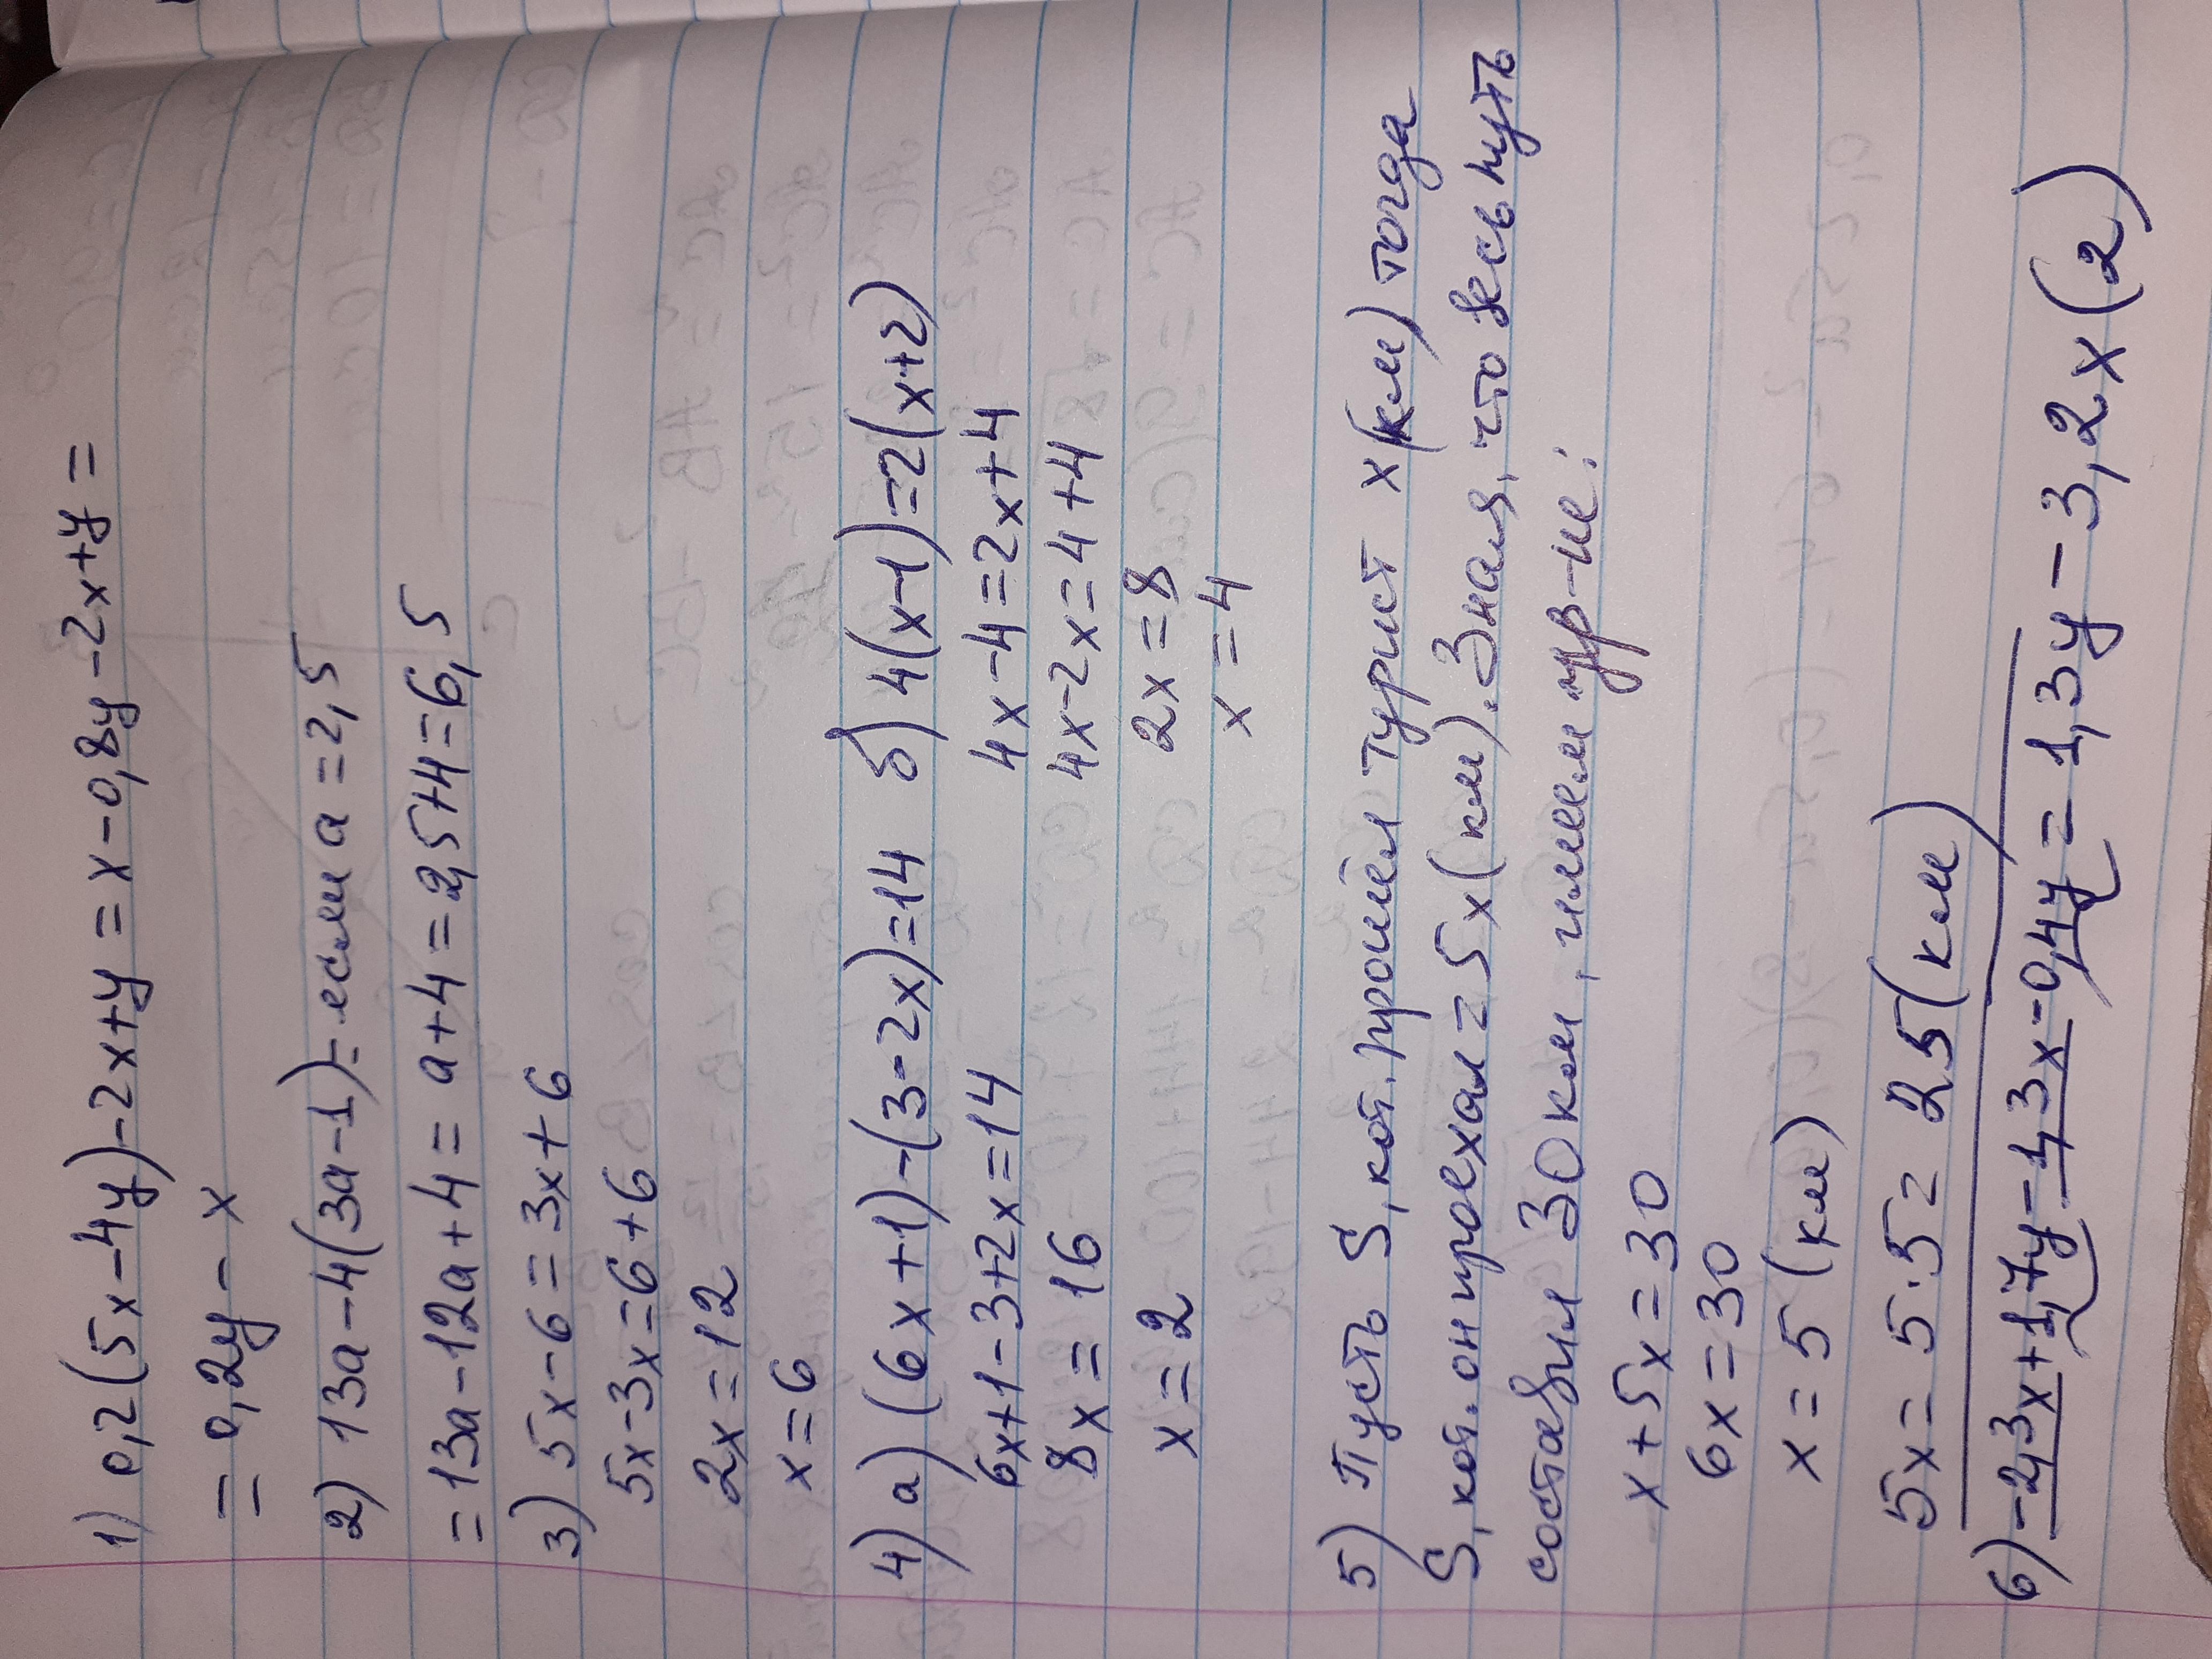 1) 0,2(5x-4y)-2x+y = x-0,8y-2x+y =
= 0,2y - x
2) 13a-4(3a-1)= если a=2,5
=13a-12a+4= a+4=2,5+4=6,5
3) 5x-6=3x+6
5x-3x=6+6
2x=12
x=6
4) а) (6x+1)-(3-2x)=14 б) 4(x-1)=2(x+2)
6x+1-3+2x=14 4x-4=2x+4
8x=16 4x-2x=4+4
x=2 2x=8
x=4
5) Пусть S, кот. прошёл турист x(км) тогда
S, кот. он проехал=5x(км). Зная, что весь путь
составил 30км, имеем ур-ие:
x+5x=30
6x=30
x=5 (км)
5x=5·5=25(км)
6) -2,3x+1,7y-1,3x-0,4y=1,3y-3,2x(2)